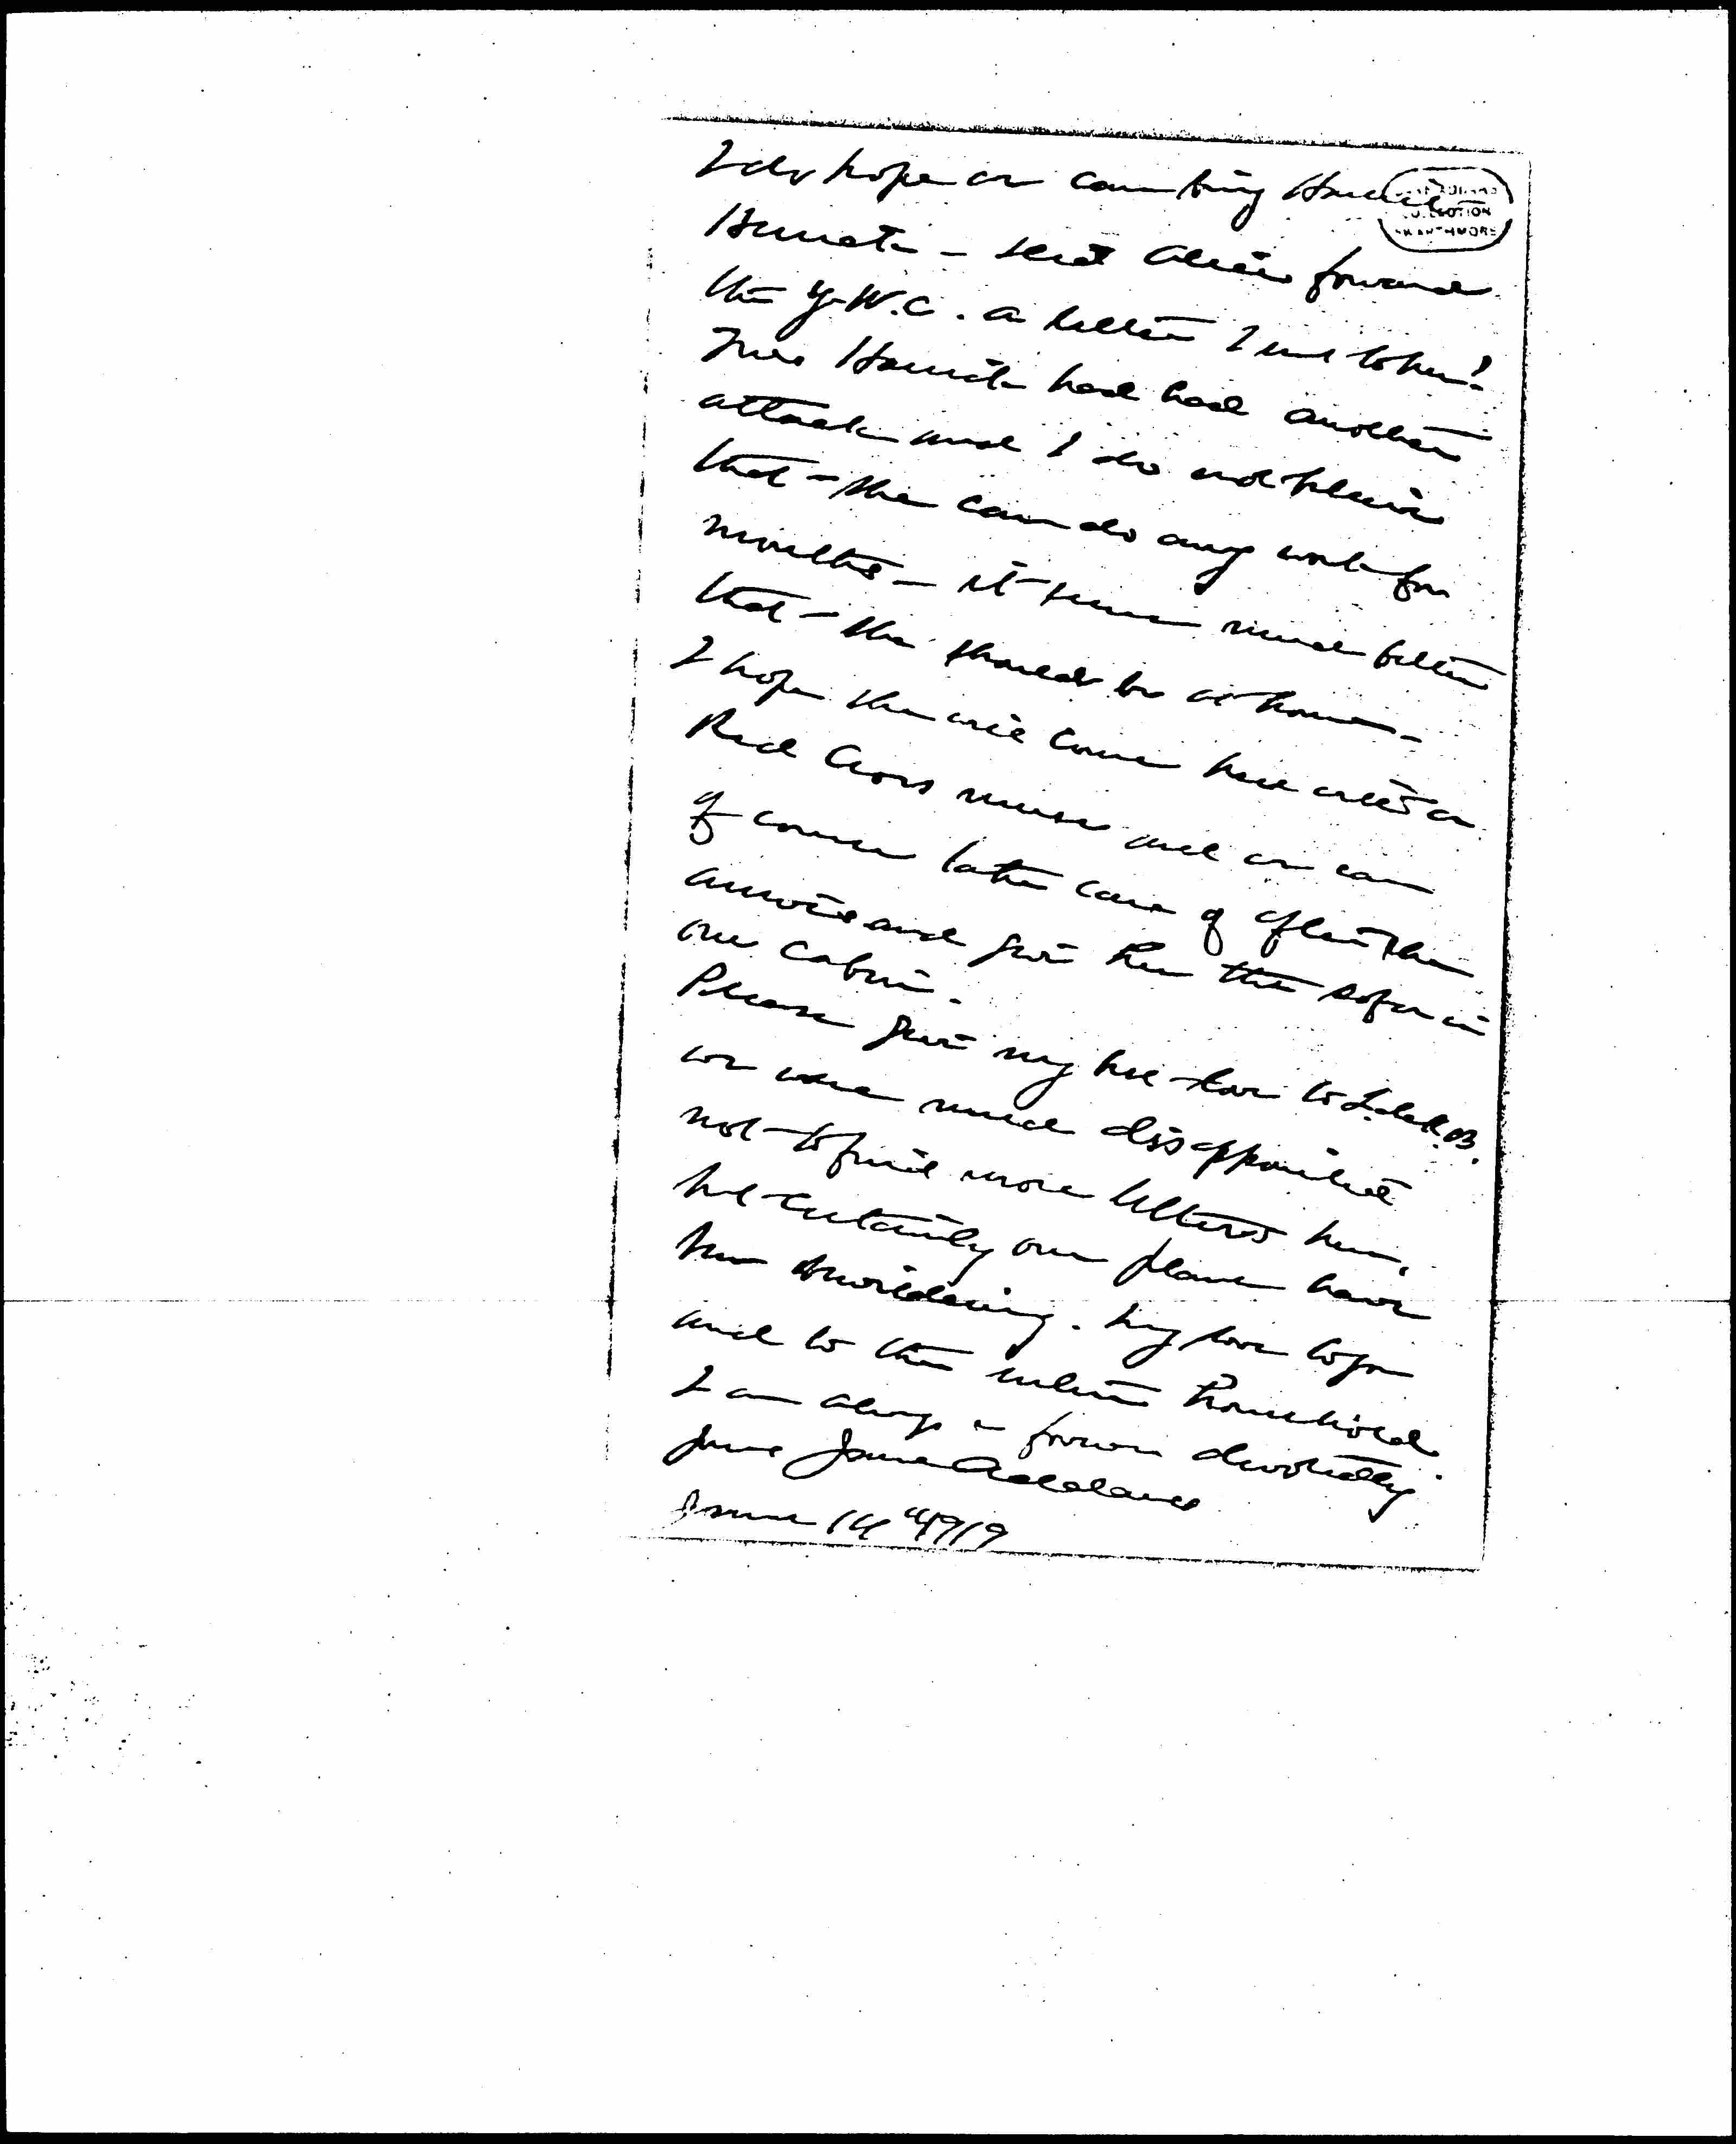 I do hope we can bring Harriet
JANE ADDAMS
COLLECTION
SWARTHMORE
home - Did Alice forward
the Y.W.C. a letter I sent to her?
had had another
attack and I do not believe
that - she can do any work for
months - it seems much better
that - she should be at home -
I hope she will come here with a
Red Cross nurse and we can
of course take care of after she
arrives and give her the sofa in
our cabin.
Please give my best - love to L. deK. B.
we were much disappointed
not - to find more letters here,
but - certainly our plans have
been bewildering. My love to you
and to the entire household
I am always - forever devotedly
yours Jane Addams
June 14" 1919